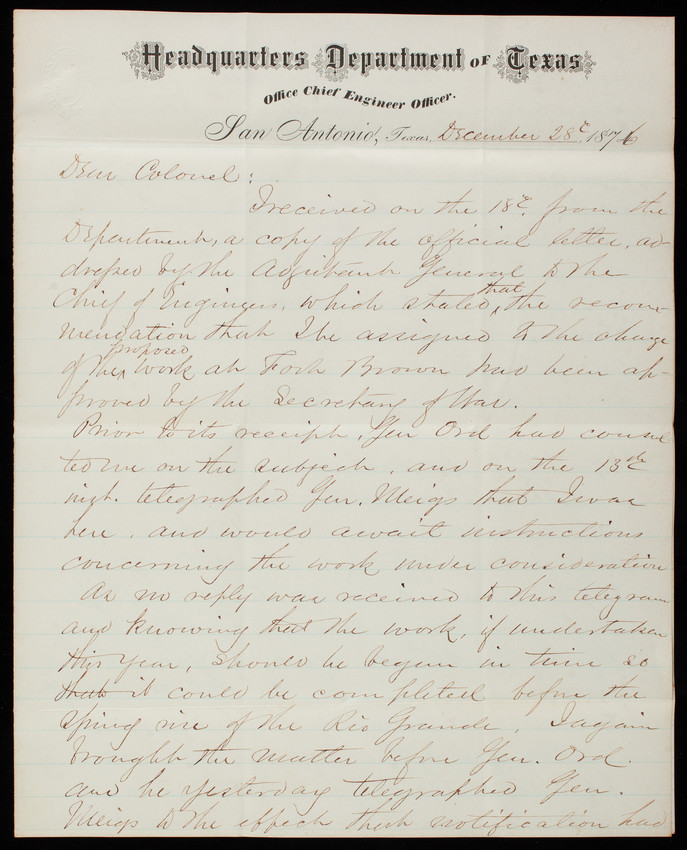 Headquarters Department of Texas
Office Chief Engineer Officer.
San Antonio, Texas, December 28th, 1876
Dear Colonel:
I received on the 18th from the
Department, a copy of the official letter, ad-
dressed by the Adjutant General to the
Chief of Engineers, which stated that the recom-
mendation that I be assigned to the charge
of the proposed work at Fort Brown had been ap-
proved by the Secretary of War.
Prior to its receipt, Gen Ord had consul
ted me on the subject, and on the 13th
inst. telegraphed Gen. Meigs that I was
here, and would await instructions
concerning the work under consideration
As no reply was received to this telegram
and knowing that the work, if undertaken
this year, should be begun in time so
that it could be completed before the
spring rise of the Rio Grande, I again
brought the matter before Gen. Ord.
and he yesterday telegraphed Gen.
Meigs to the effect that notification had